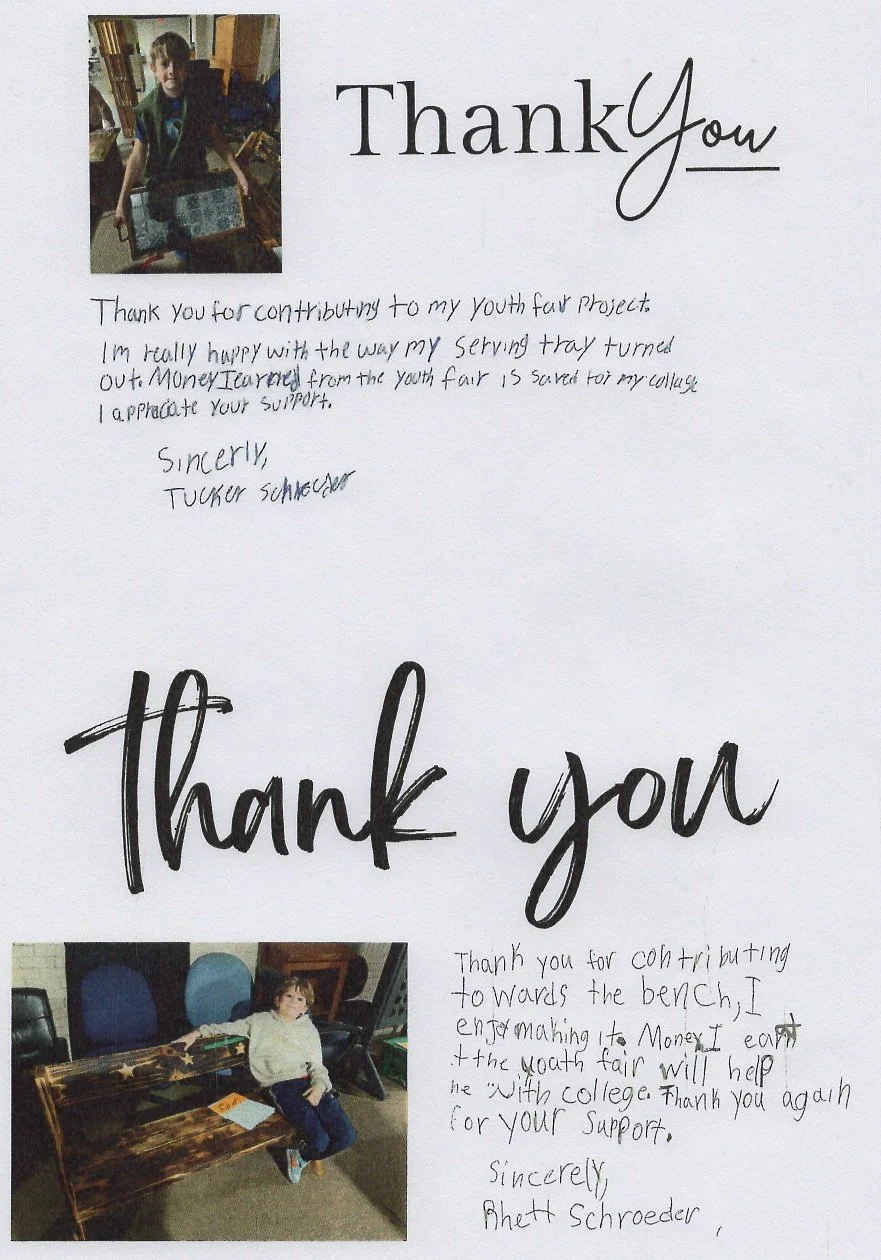 Thank You
Thank you for contributing to my youth fair project.
Im really happy with the way my serving tray turned
out. Money I earned from the youth fair is saved for my collage
I appriciate your support.
Sincerly,
Tucker Schroeder
Thank you
Thank you for contributing
towards the bench, I
enjoy making it. Money I earn at
the youth fair will help
me with college. Thank you again
for your support.
Sincerely,
Rhett Schroeder